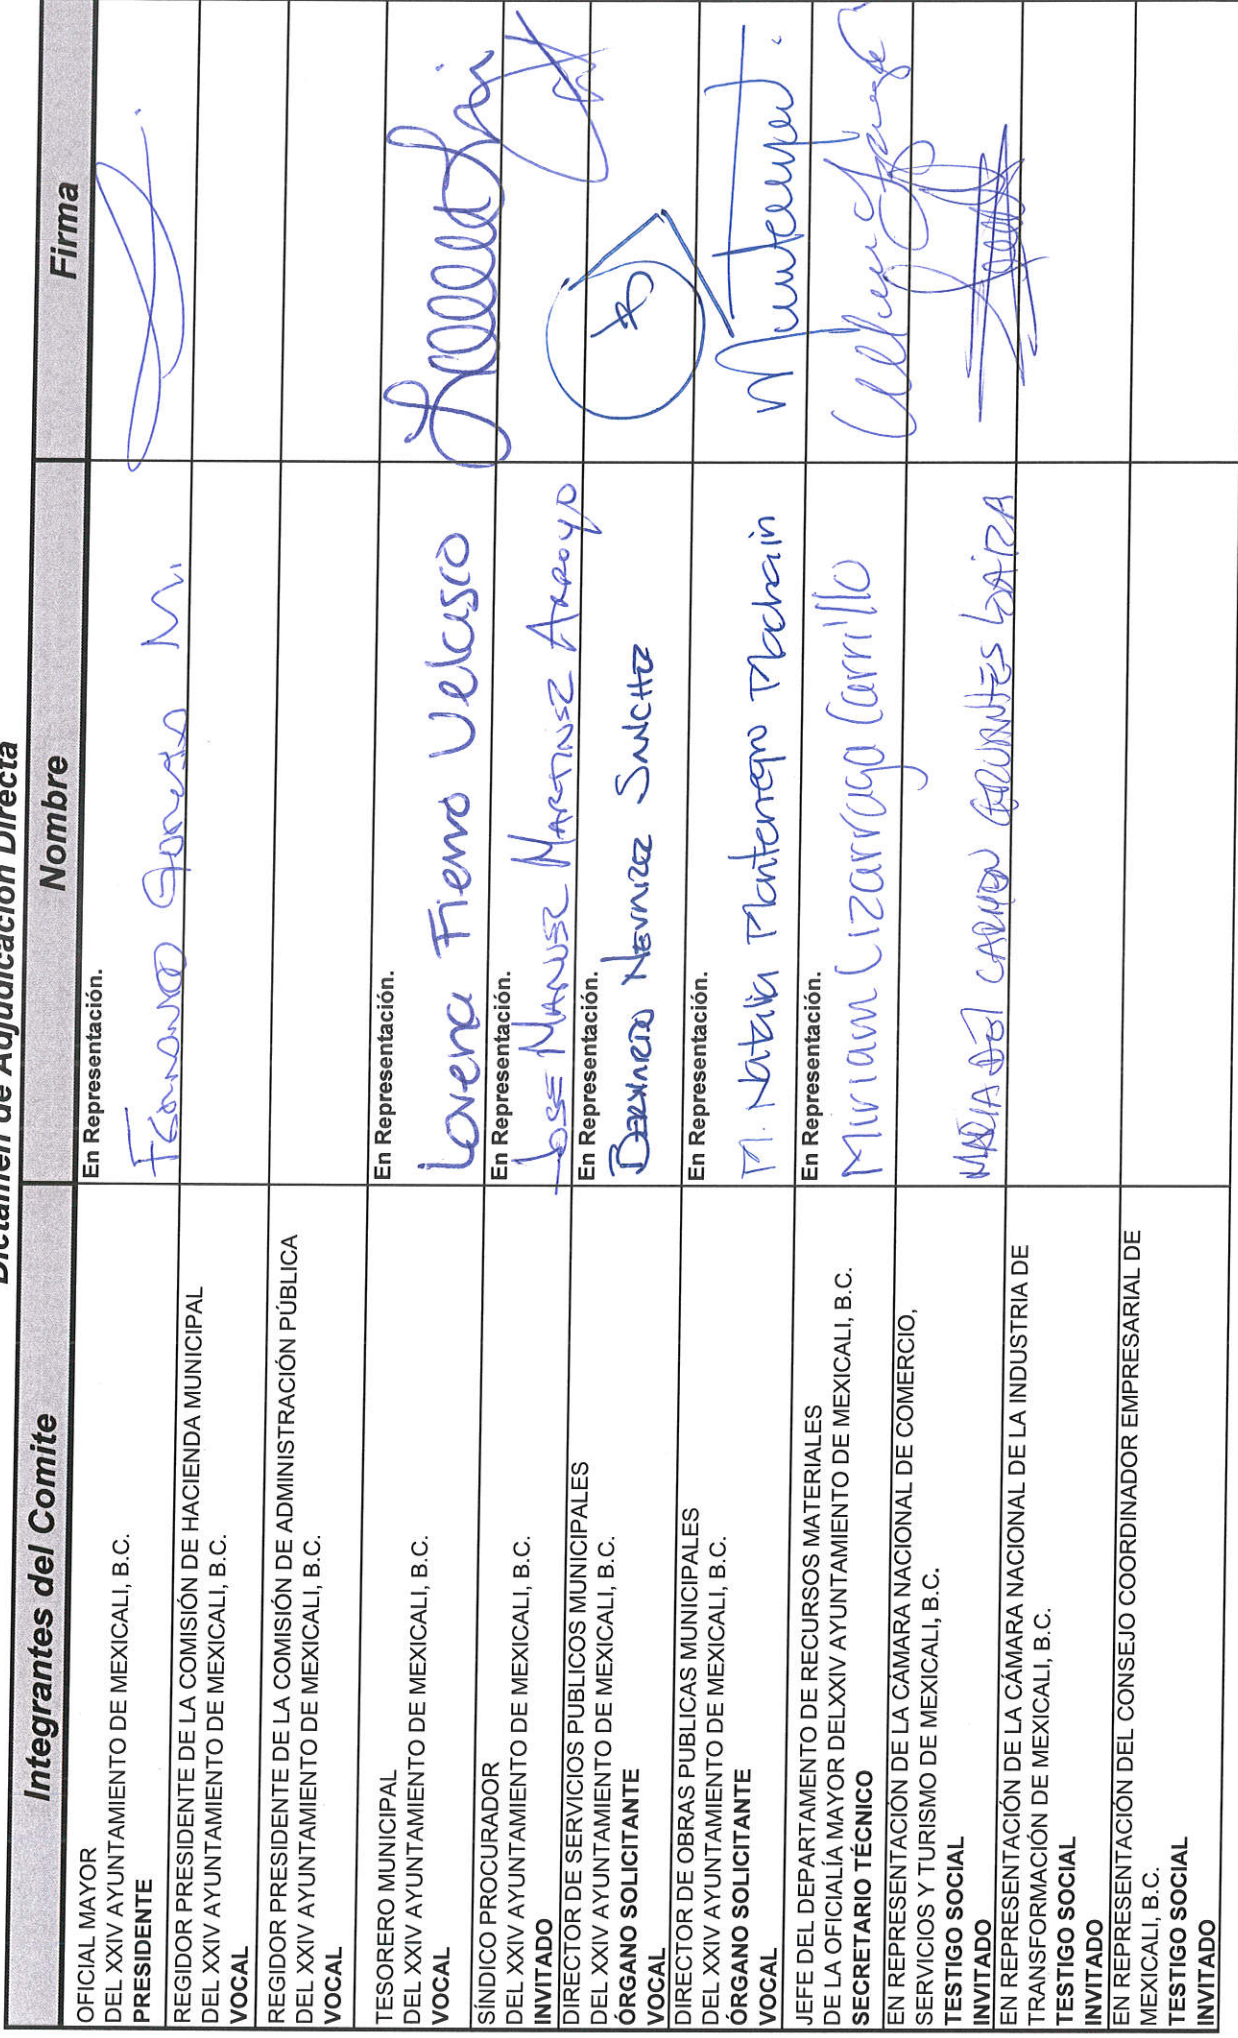 Dictamen de Adjudicación Directa
Integrantes del Comite
Nombre
Firma
OFICIAL MAYOR
DEL XXIV AYUNTAMIENTO DE MEXICALI, B.C.
PRESIDENTE
En Representación.
M.
REGIDOR PRESIDENTE DE LA COMISIÓN DE HACIENDA MUNICIPAL
DEL XXIV AYUNTAMIENTO DE MEXICALI, B.C.
VOCAL
REGIDOR PRESIDENTE DE LA COMISIÓN DE ADMINISTRACIÓN PÚBLICA
DEL XXIV AYUNTAMIENTO DE MEXICALI, B.C.
VOCAL
TESORERO MUNICIPAL
DEL XXIV AYUNTAMIENTO DE MEXICALI, B.C.
VOCAL
En Representación.
Lorena Fierro Velasco
SÍNDICO PROCURADOR
DEL XXIV AYUNTAMIENTO DE MEXICALI, B.C.
INVITADO
En Representación.
JOSE MANUEL MARTINEZ ARROYO
DIRECTOR DE SERVICIOS PUBLICOS MUNICIPALES
DEL XXIV AYUNTAMIENTO DE MEXICALI, B.C.
ÓRGANO SOLICITANTE
VOCAL
En Representación.
SANCHEZ
DIRECTOR DE OBRAS PUBLICAS MUNICIPALES
DEL XXIV AYUNTAMIENTO DE MEXICALI, B.C.
ÓRGANO SOLICITANTE
VOCAL
En Representación.
M. Natalia Montenegro Machain
JEFE DEL DEPARTAMENTO DE RECURSOS MATERIALES
DE LA OFICIALÍA MAYOR DELXXIV AYUNTAMIENTO DE MEXICALI, B.C.
SECRETARIO TÉCNICO
En Representación.
Miriam Lizarraga Carrillo
EN REPRESENTACIÓN DE LA CÁMARA NACIONAL DE COMERCIO,
SERVICIOS Y TURISMO DE MEXICALI, B.C.
TESTIGO SOCIAL
INVITADO
MARIA DEL CARMEN
EN REPRESENTACIÓN DE LA CÁMARA NACIONAL DE LA INDUSTRIA DE
TRANSFORMACIÓN DE MEXICALI, B.C.
TESTIGO SOCIAL
INVITADO
EN REPRESENTACIÓN DEL CONSEJO COORDINADOR EMPRESARIAL DE
MEXICALI, B.C.
TESTIGO SOCIAL
INVITADO